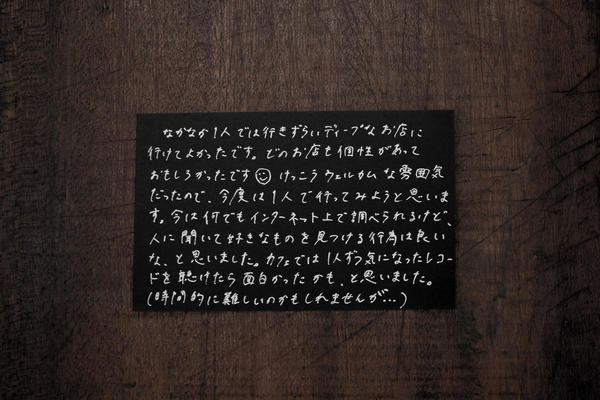 なかなか1人では行きずらいディープなお店に
行けてよかったです。どのお店も個性があって
おもしろかったです☺ けっこうウェルカムな雰囲気
だったので、今度は1人で行ってみようと思いま
す。今は何でもインターネット上で調べられるけど、
人に聞いて好きなものを見つける行為は良い
な、と思いました。カフェでは1人ずつ気になったレコー
ドを聴けたら面白かったかも、と思いました。
(時間的に難しいのかもしれませんが…)